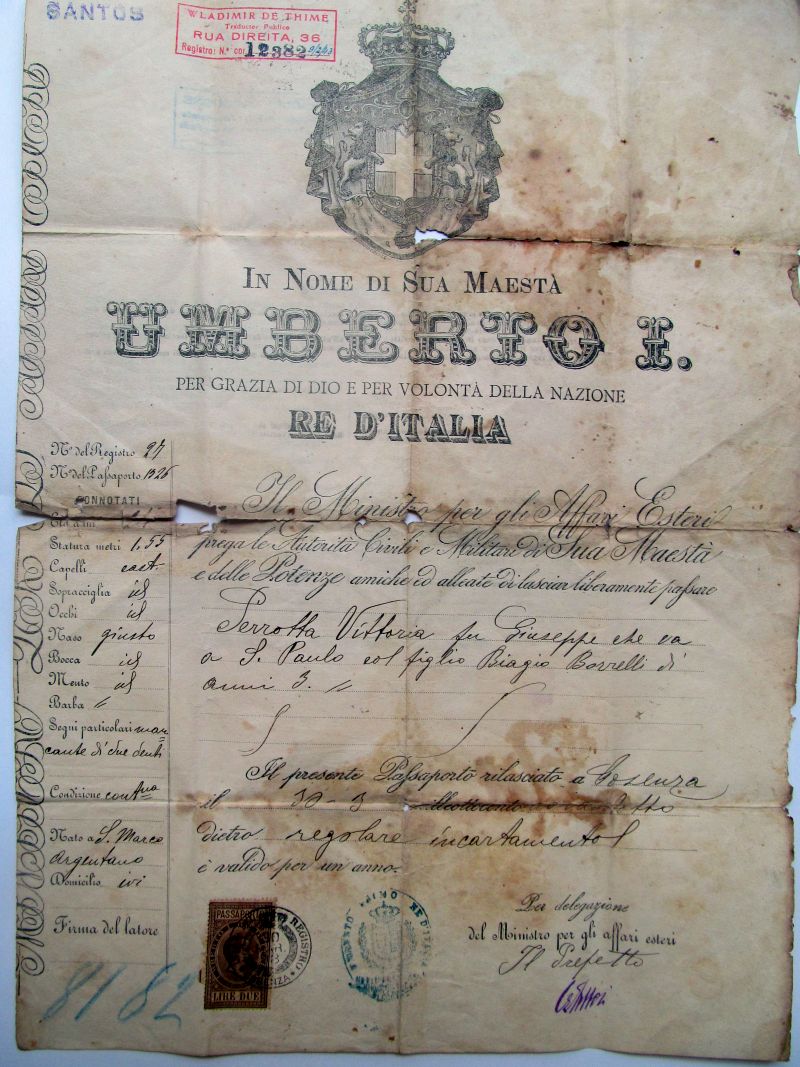 SANTOS
WLADIMIR DE THIME
Traductor Publico
RUA DIREITA, 36
Registro: N.º cor. 12382
IN NOME DI SUA MAESTÀ
UMBERTO I.
PER GRAZIA DI DIO E PER VOLONTÀ DELLA NAZIONE
RE D'ITALIA
Nº del Registro 27
Nº del Passaporto 1326
CONNOTATI
Età anni
Statura metri 1.55
Capelli cast.
Sopracciglia id
Occhi id
Naso giusto
Bocca id
Mento id
Barba "
Segni particolari man-
cante di due denti
Condizione contna
Nato a S. Marco
Argentano
Domicilio ivi
Firma del latore
Il Ministro per gli Affari Esteri
prega le Autorità Civili e Militari di Sua Maestà
e delle Potenze amiche ed alleate di lasciar liberamente passare
Perrotta Vittoria fu Giuseppe che va
a S. Paulo col figlio Biagio Borrelli di
anni 3. "
Il presente Passaporto rilasciato a Cosenza
il 30-3
dietro regolare incartamento
è valido per un anno.
Per delegazione
del Ministro per gli affari esteri
Il Prefetto
PASSAPORTI
LIRE DUE
REGISTRO
8182